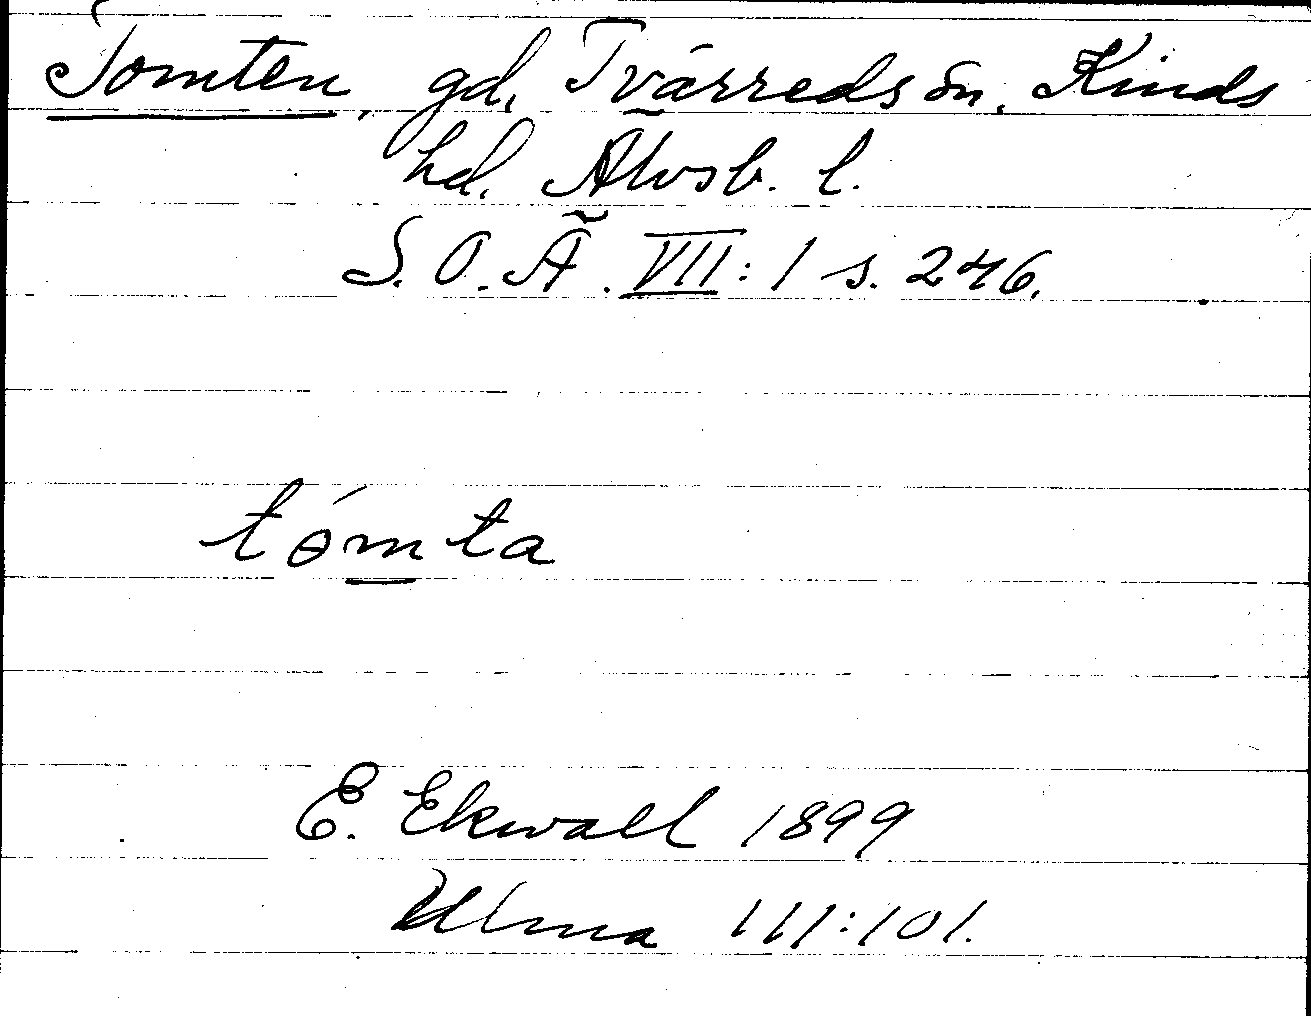 Tomten, gd, Tvärreds sn, Kinds
hd. Älvsb. l.
S. O. Ä. VII: 1 s. 246.
tɵ́mta
E. Ekwall 1899
Ulma 111:101.